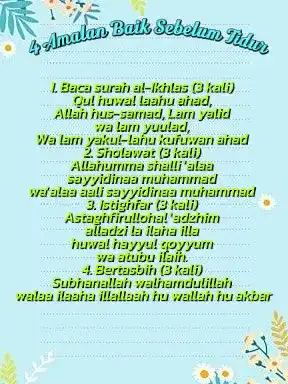 4 Amalan Baik Sebelum Tidur
1. Baca surah al-Ikhlas (3 kali)
Qul huwal laahu ahad,
Allah hus-samad, Lam yalid
wa lam yuulad,
Wa lam yakul-lahu kufuwan ahad
2. Sholawat (3 kali)
Allahumma shalli 'alaa
sayyidinaa muhammad
wa'alaa aali sayyidinaa muhammad
3. Istighfar (3 kali)
Astaghfirullohal 'adzhim
alladzi la ilaha illa
huwal hayyul qoyyum
wa atubu ilaih.
4. Bertasbih (3 kali)
Subhanallah walhamdulillah
walaa ilaaha illallaah hu wallah hu akbar